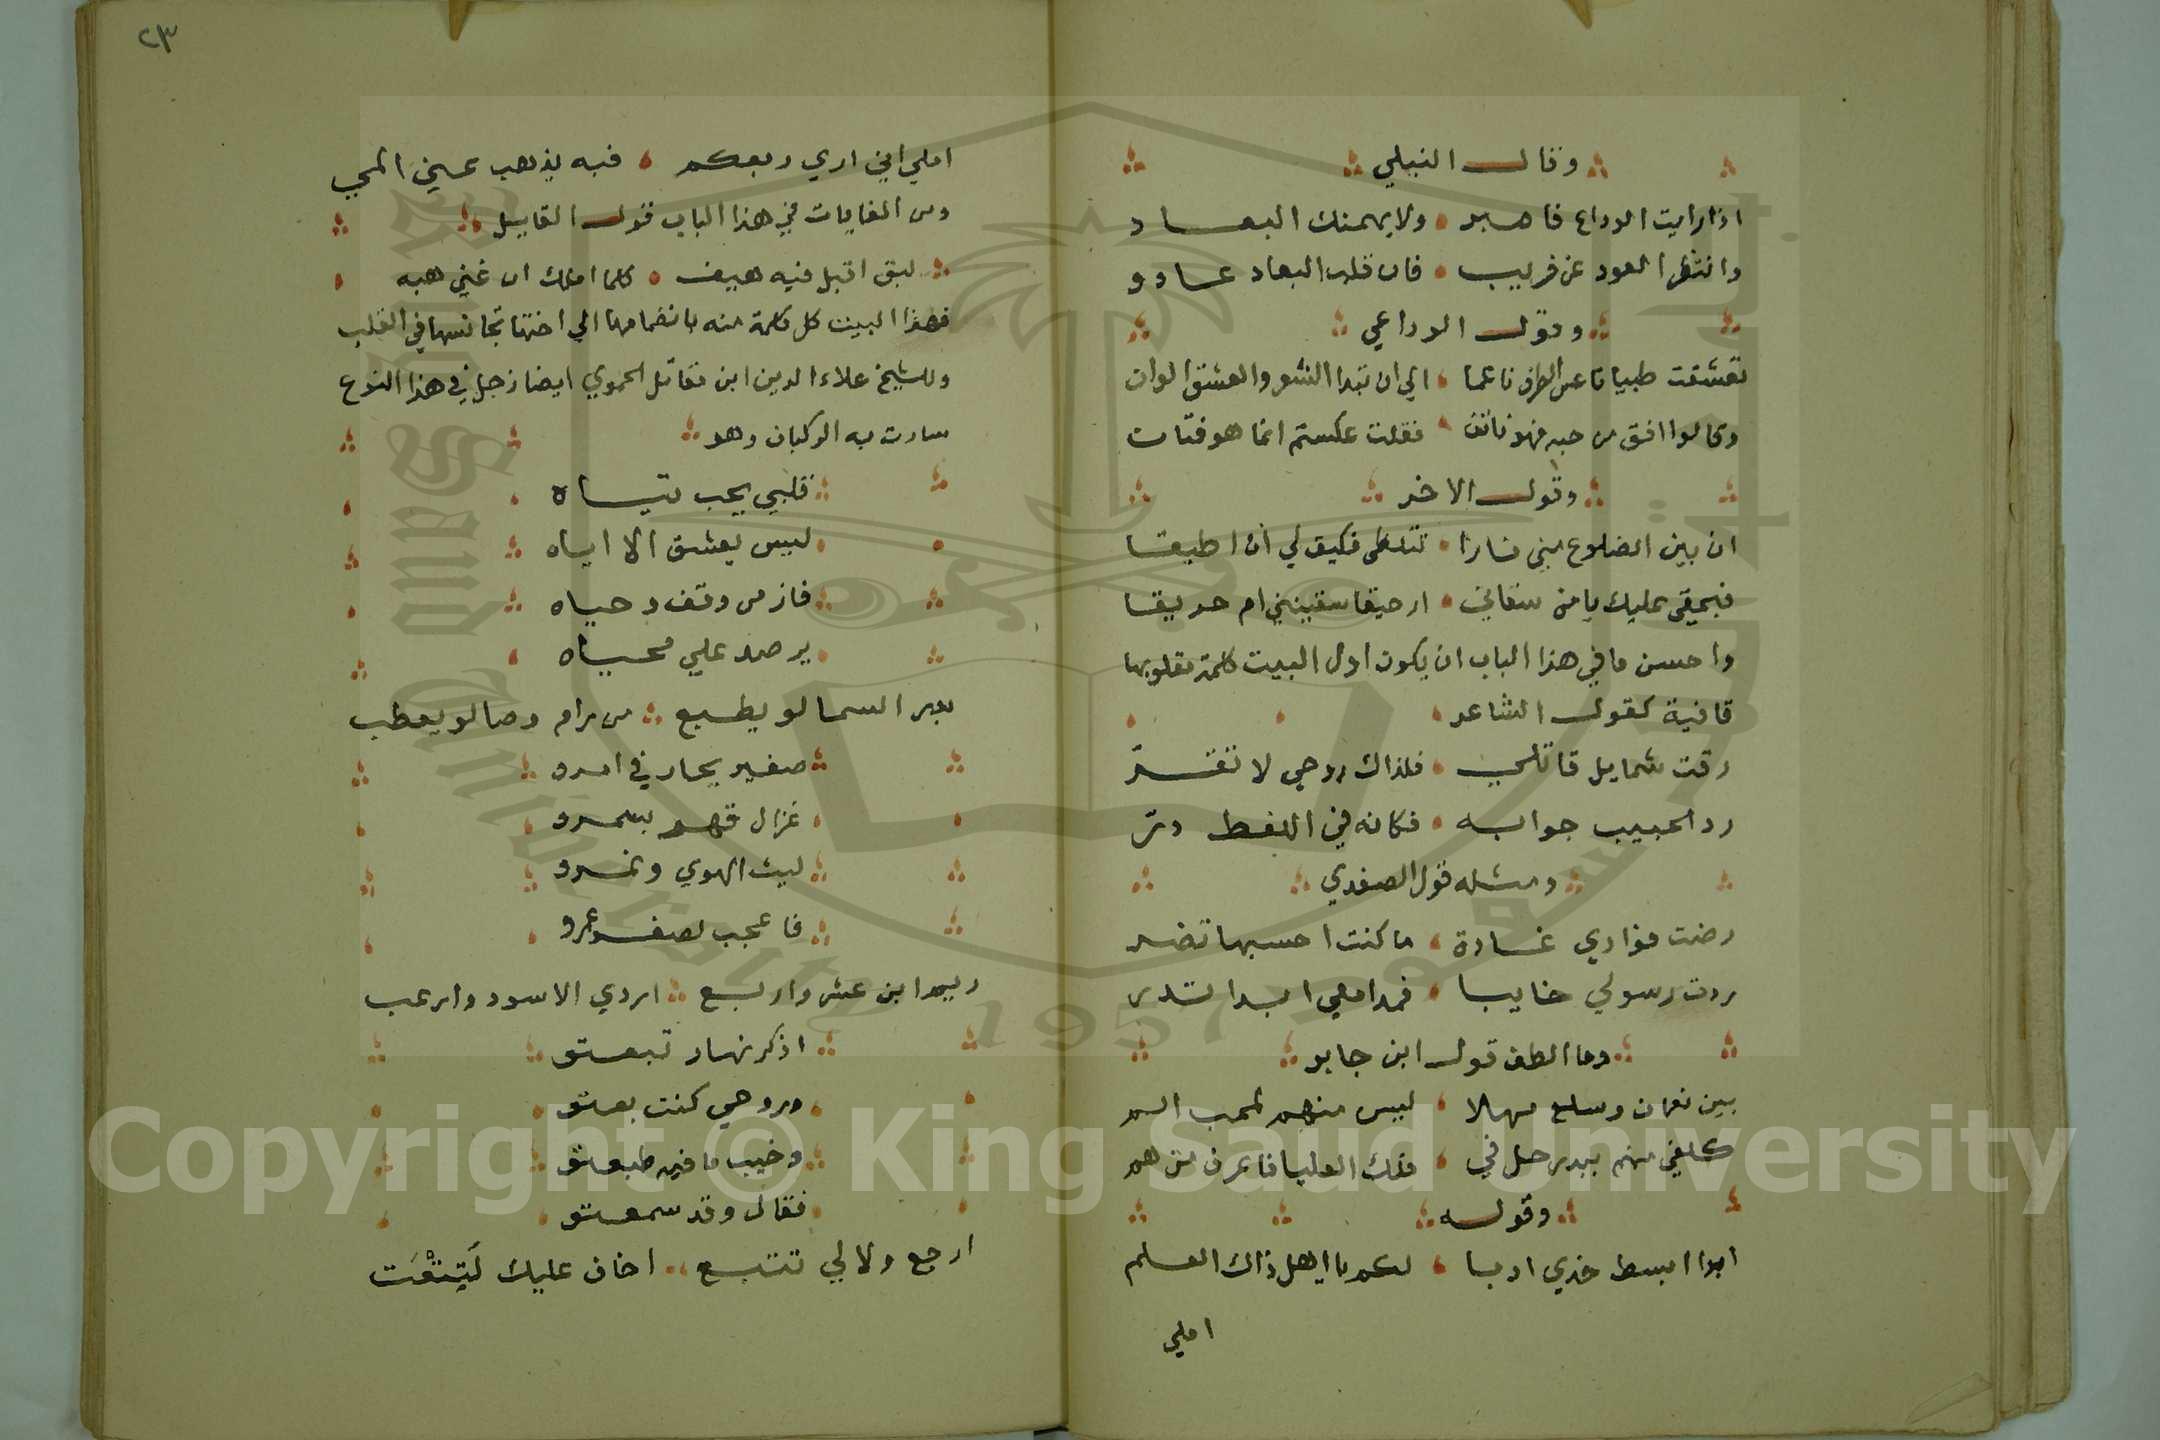 وقال النبلي
اذا رايت الوداع فاصبر ولا يهمنك البعاد
وانتظر العود عن قريب فان قلب البعاد عادوا
وقول الوداعي
تعشقت ظبيا ناعس الطرف ناعما الي ان تبدا الشعر والعشق الوان
وقالوا افق من حبه فهو ناتف فقلت عكستم انما هو فتان
وقول الاخر
ان بين الضلوع مني نارا تتلظى فكيف لي ان اطيقا
فبحقي عليك يا من سقاني ارحيقا سقيتني ام حريقا
واحسن ما في هذا الباب ان يكون اول البيت كلمة مقلوبها
قافية كقول الشاعر
رقت شمايل قاتلي فلذاك روحي لا تقر
رد الحبيب جوابه فكانه في اللفظ در
ومثله قول الصفدي
رضت فؤادي غادة ما كنت احسبها تضر
ردت رسولي خايبا فمدامعي ابدا تدر
وما الطف قول ابن جابر
بين نعمان وسلع نهلا ليس منهم لمحب الم
كلفي منهم ببدر حل في فلك العليا فاعرف من هم
وقوله
ابدا ابسط خدي ادبا لكم يا اهل ذاك العلم
املي
٢٣
املي اني اري ربعكم فبه يذهب عني المي
ومن الغايات في هذا الباب قول القايل
لبق اقبل فيه هيف كلما املك ان غني هبه
فهذا البيت كل كلمة منه بانضمامها الي اختها تجانسها في القلب
وللشيخ علاء الدين ابن مقاتل الحموي ايضا زجل في هذا النوع
سارت به الركبان وهو
قلبي يحب تياه
ليس يعشق الا اياه
فاز من وقف وحياه
يرصد علي محياه
بدر السما لو يطبع من رام وصالو يعطب
صغير يحار في امرو
غزال قهر بسمرو
ليث الهوي ونمرو
فاعجب لصغر عمرو
ريم ابن عشر واربع اردي الاسود وارعب
اذكر نهار تبعتو
وروحي كنت بعتو
وخيب ما فيه طمعتو
فقال وقد سمعتو
ارجع ولا لي تتبع اخاف عليك لَتِتْعَبْ
Copyright © King Saud University
King Saud University
1957